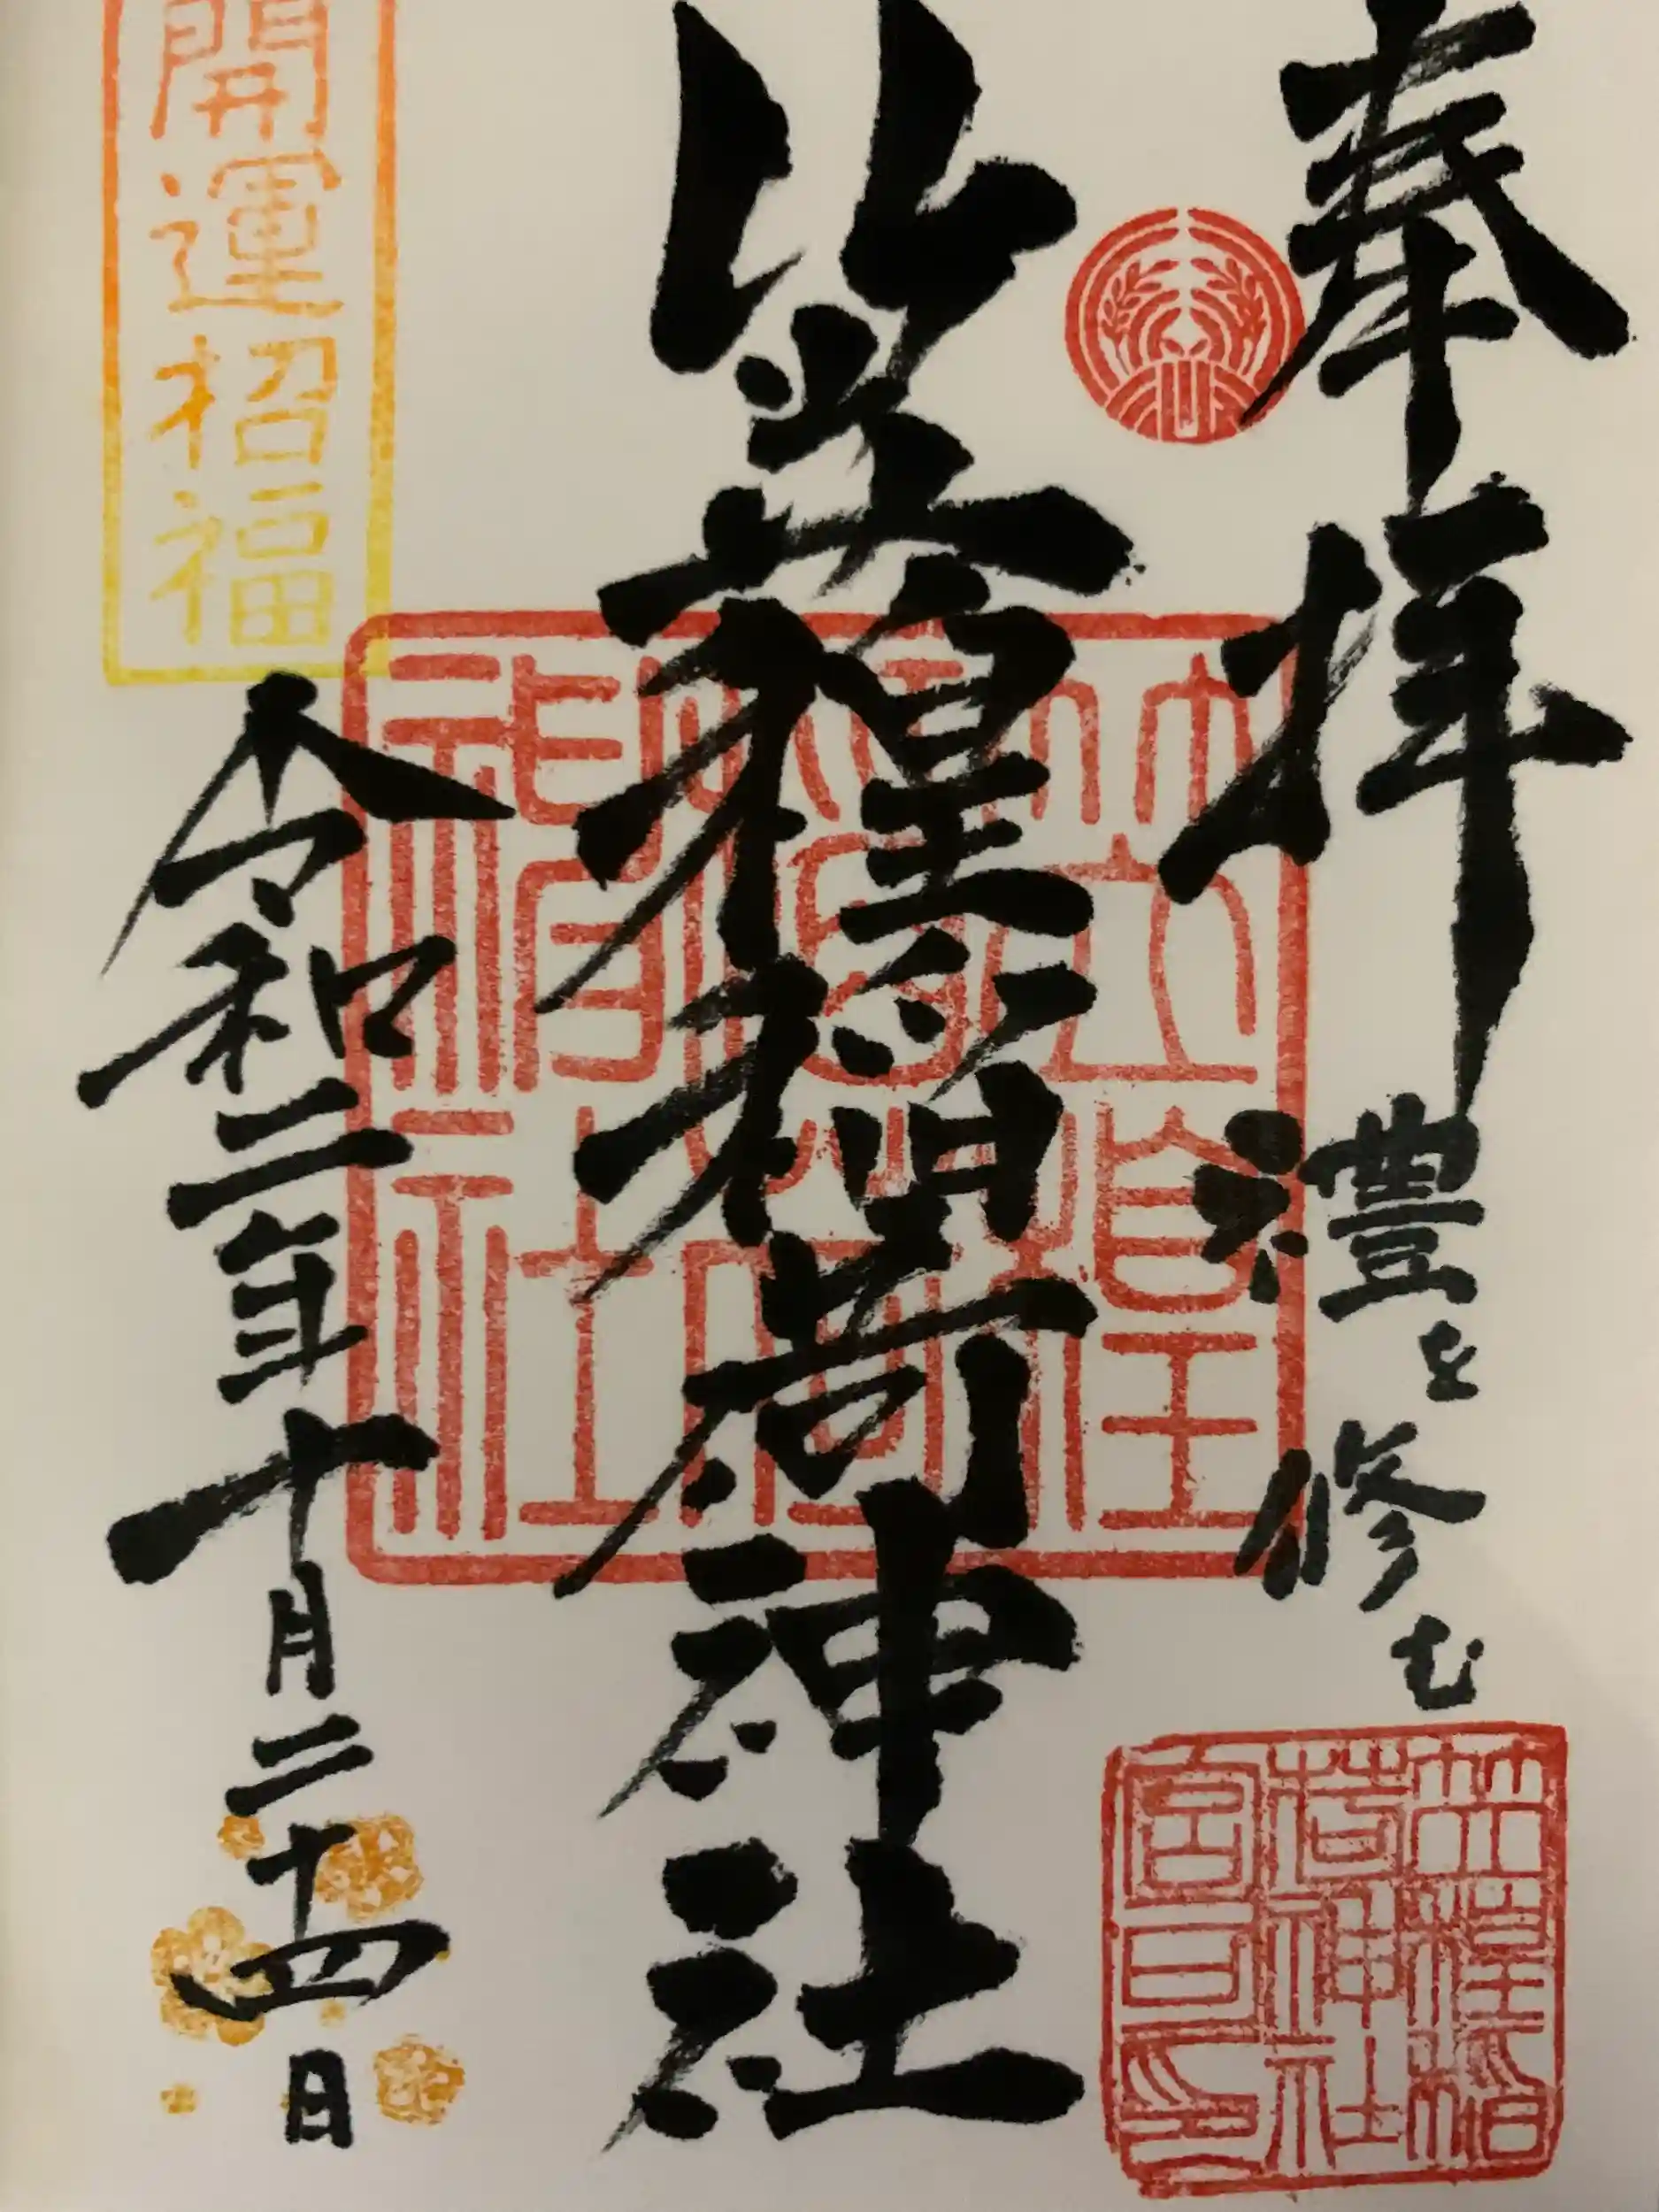 奉拝
禮を修む
笠䅣稲荷神社
令和二年十月二十四日
開運招福
笠䅣稲荷神社
笠䅣稲荷神社宮司之印